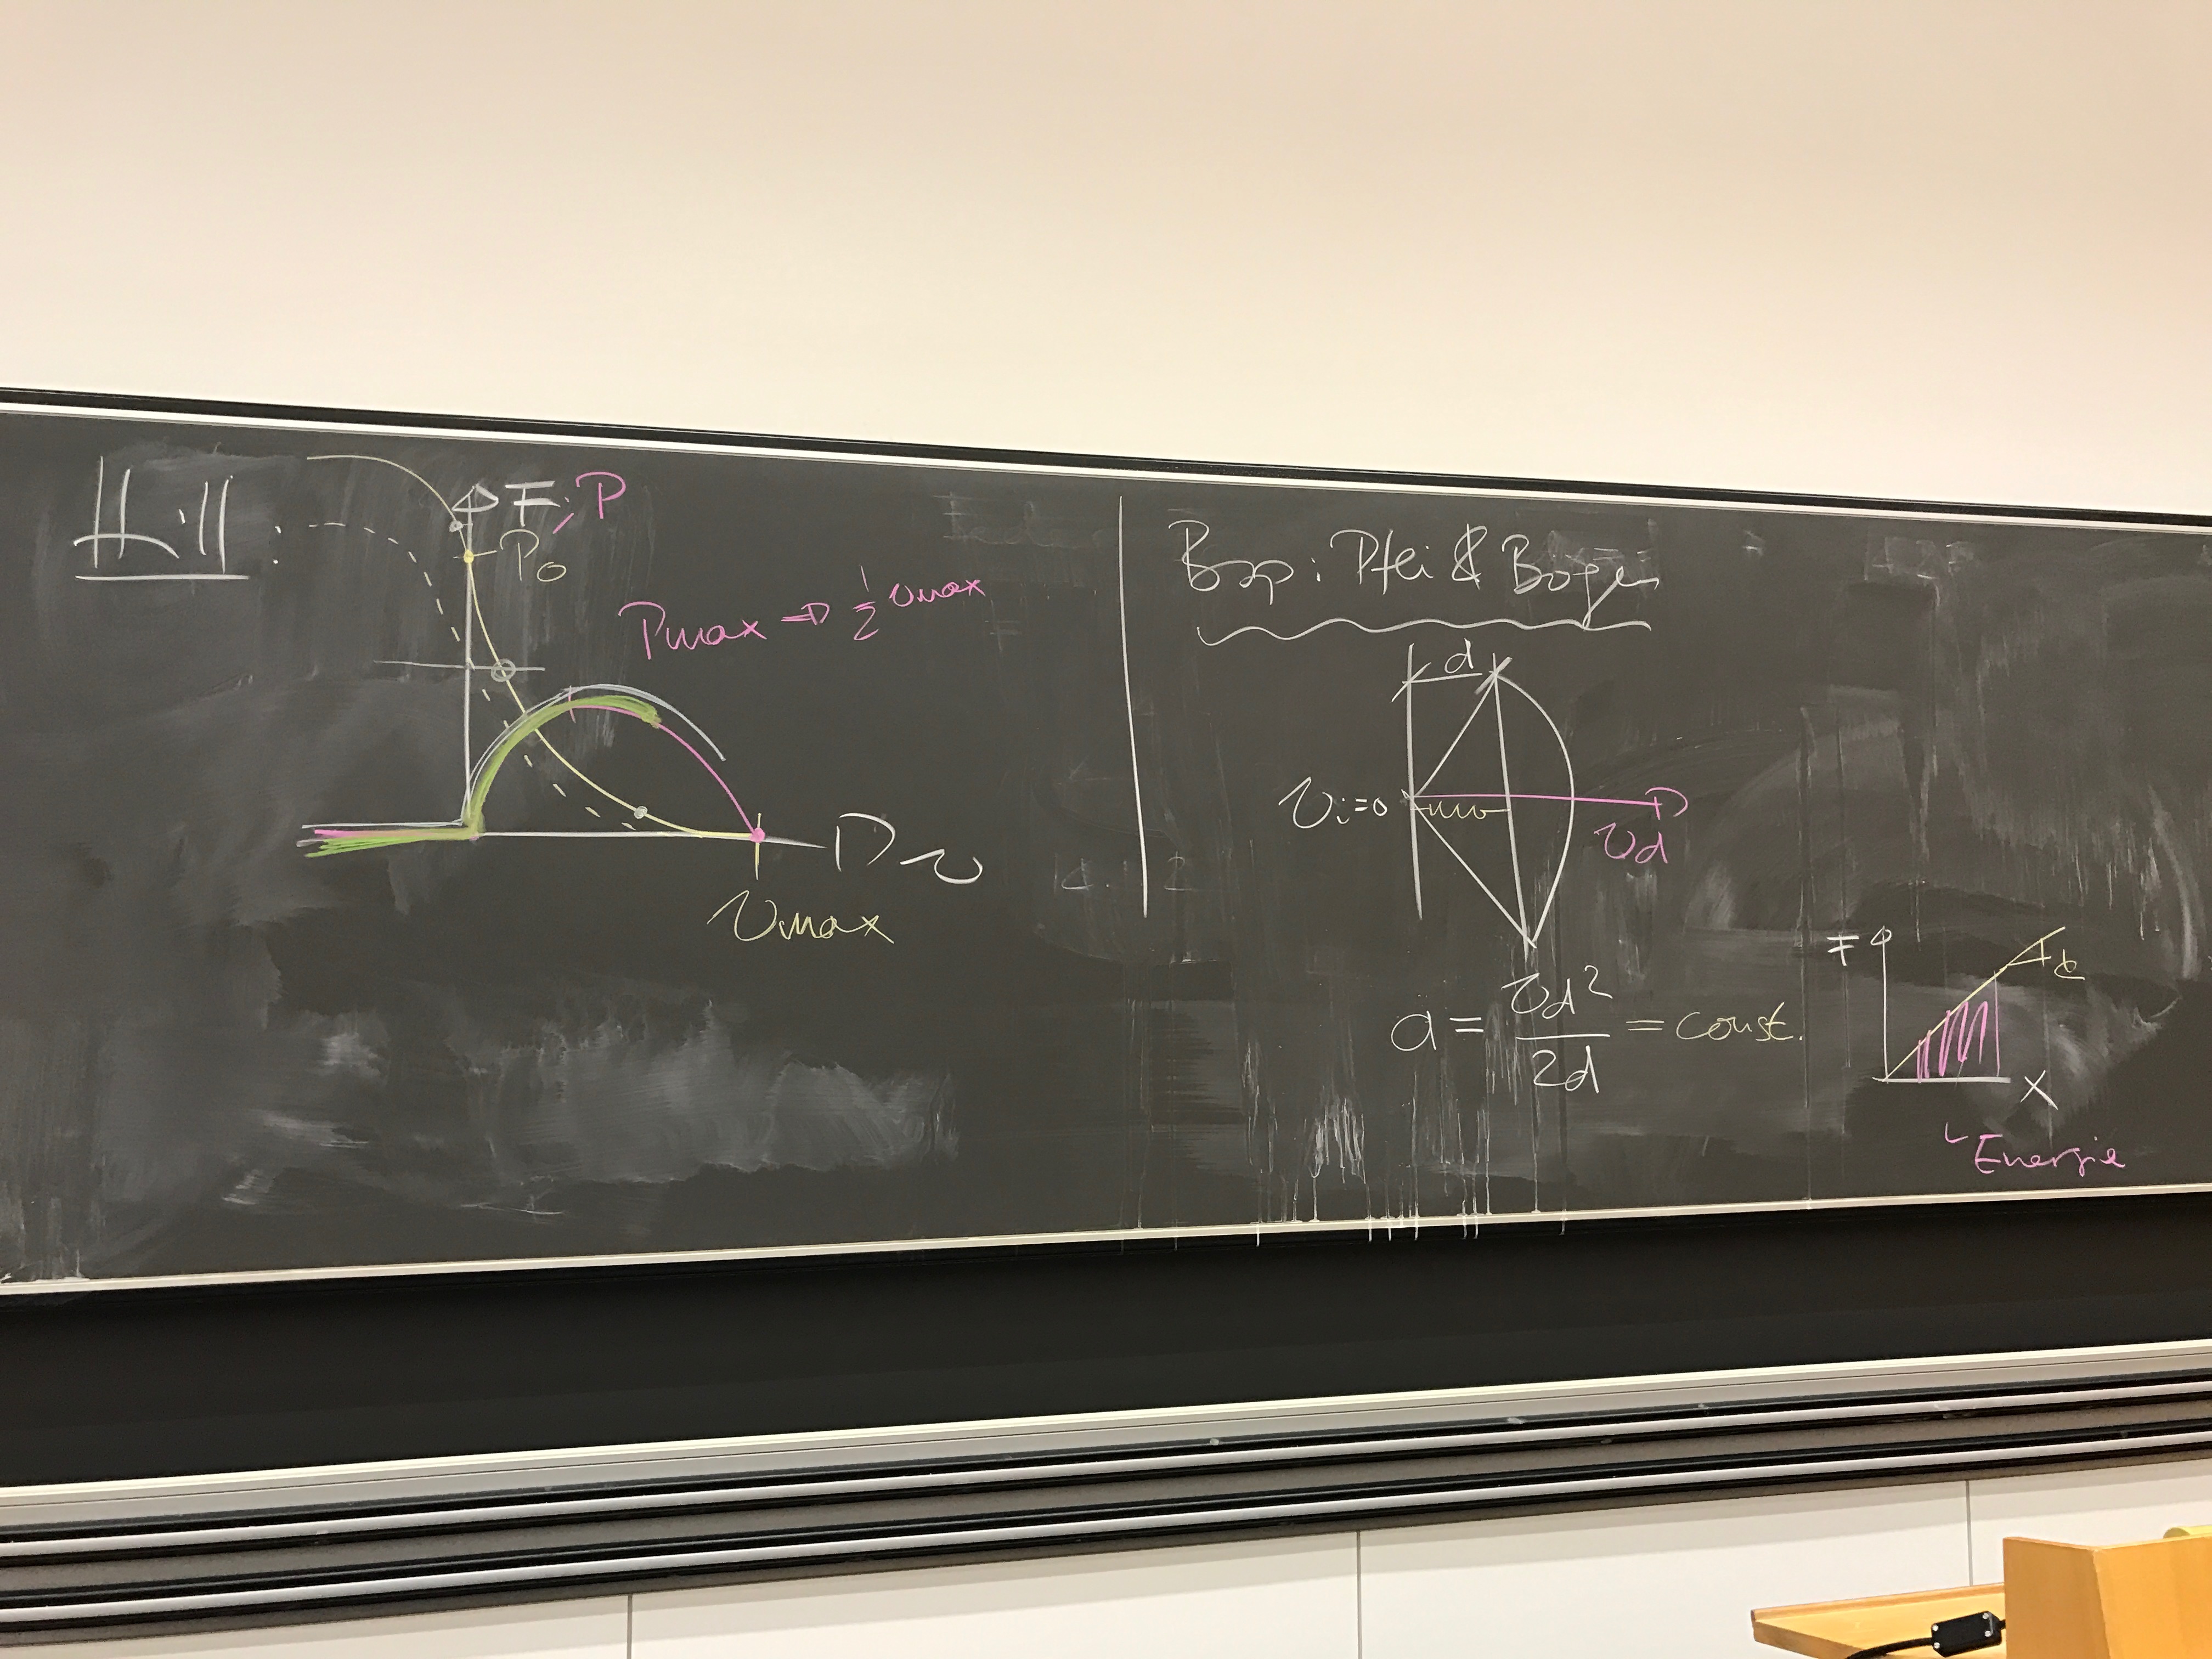 Hill:
F; P
P₀
Pmax ⇒ ½ vmax
v
vmax
Bsp: Pfei & Bogen
d
vi=0
vd
a = vd²/2d = const.
F
x
Energie